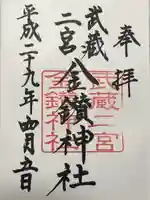 奉拝
武蔵
二宮金鑚神社
武蔵二宮
金鑚神社
平成二十九年四月五日